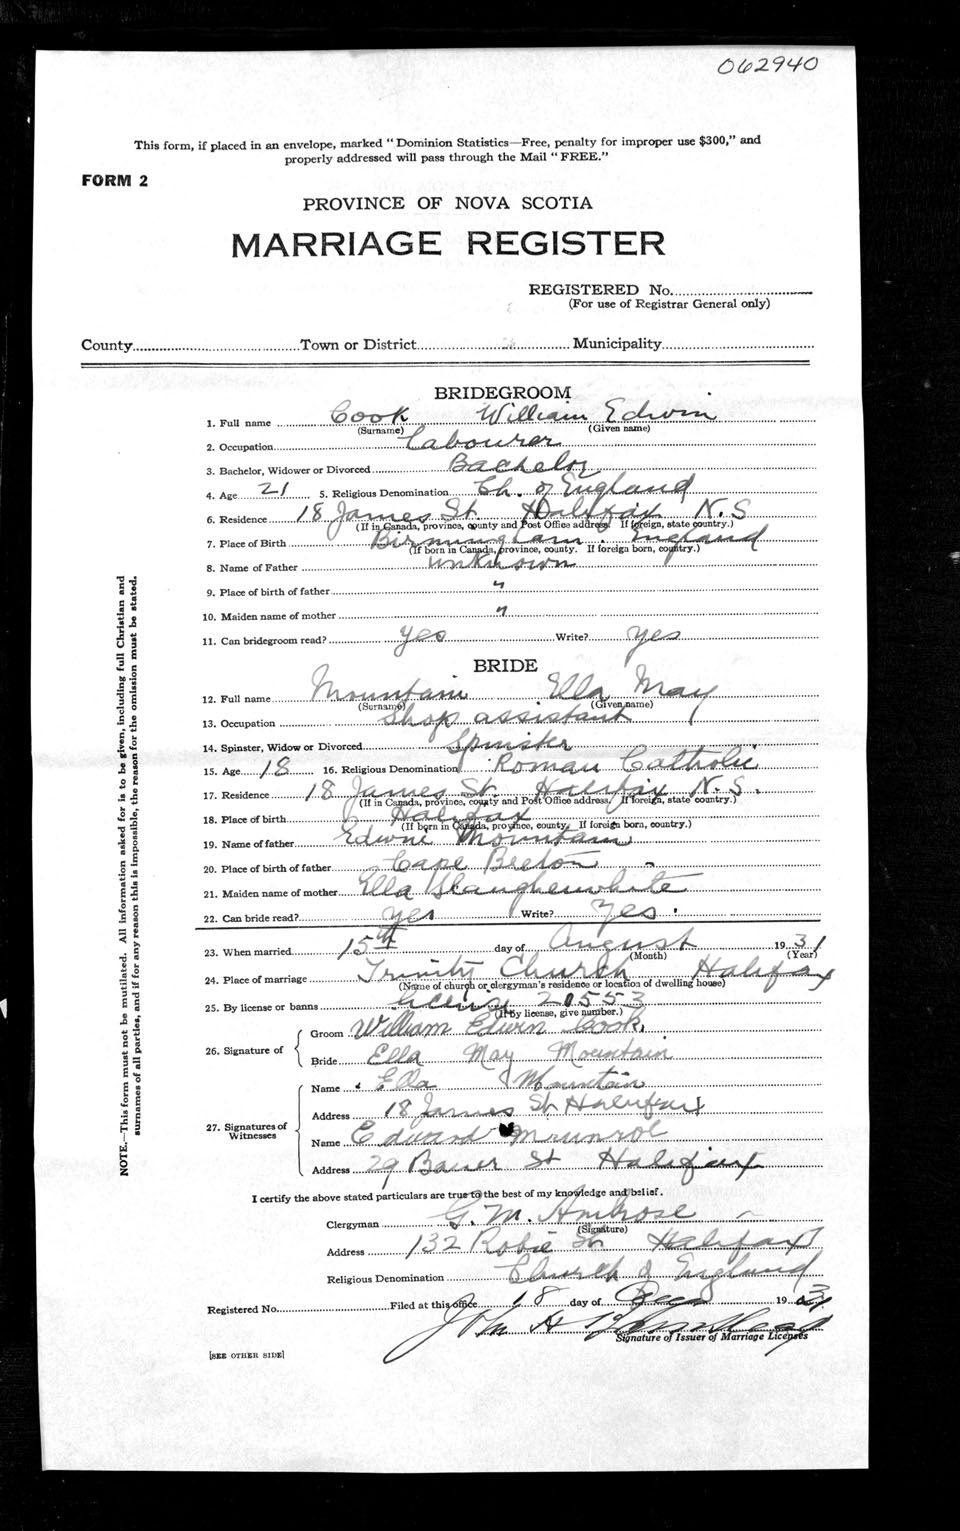 062940
This form, if placed in an envelope, marked "Dominion Statistics—Free, penalty for improper use $300," and
properly addressed will pass through the Mail "FREE."
FORM 2
PROVINCE OF NOVA SCOTIA
MARRIAGE REGISTER
REGISTERED No.
(For use of Registrar General only)
County Town or District Municipality
BRIDEGROOM
1. Full name Cook William Edwin
(Surname) (Given name)
2. Occupation Labourer
3. Bachelor, Widower or Divorced Bachelor
4. Age 21 5. Religious Denomination Ch. of England
6. Residence 18 James St. Halifax N.S
(If in Canada, province, county and Post Office address. If foreign, state country.)
7. Place of Birth Birmungham. England
(If born in Canada, province, county. If foreign born, country.)
8. Name of Father unknown
9. Place of birth of father "
10. Maiden name of mother "
11. Can bridegroom read? yes Write? yes
BRIDE
12. Full name Mountain Ella May
(Surname) (Given name)
13. Occupation Shop assistant
14. Spinster, Widow or Divorced Spinster
15. Age 18 16. Religious Denomination Roman Catholic
17. Residence 18 James St. Halifax N.S.
(If in Canada, province, county and Post Office address. If foreign, state country.)
18. Place of birth Halifax
(If born in Canada, province, county. If foreign born, country.)
19. Name of father Edwne Mountain
20. Place of birth of father Cape Breton
21. Maiden name of mother Ella Slaughenwhite
22. Can bride read? yes Write? Yes.
23. When married 15th day of August 1931
(Month) (Year)
24. Place of marriage Trinity Church Halifax
(Name of church or clergyman's residence or location of dwelling house)
25. By license or banns 20553
(If by license, give number.)
26. Signature of
Groom William Edwin Cook.
Bride Ella May Mountain
27. Signatures of Witnesses
Name Ella Mountain
Address 18 James St Halifax
Name Edward Munroe
Address 29 Bauer St Halifax
I certify the above stated particulars are true to the best of my knowledge and belief.
Clergyman G. M. Ambrose
(Signature)
Address 132 Robie St Halifax
Religious Denomination Church of England
Registered No. Filed at this office 18 day of 1931
John A
Signature of Issuer of Marriage Licenses
[SEE OTHER SIDE]
NOTE.—This form must not be mutilated. All information asked for is to be given, including full Christian and
surnames of all parties, and if for any reason this is impossible, the reason for the omission must be stated.